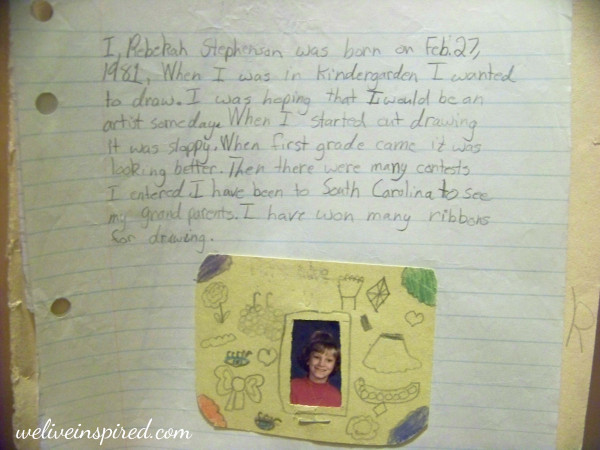 I, Rebekah Stephenson was born on Feb. 27,
1981, When I was in Kindergarden I wanted
to draw. I was hoping that I would be an
artist someday. When I started out drawing
it was sloppy. When first grade came it was
looking better. Then there were many contests
I entered. I have been to South Carolina to see
my grand parents. I have won many ribbons
for drawing.
weliveinspired.com